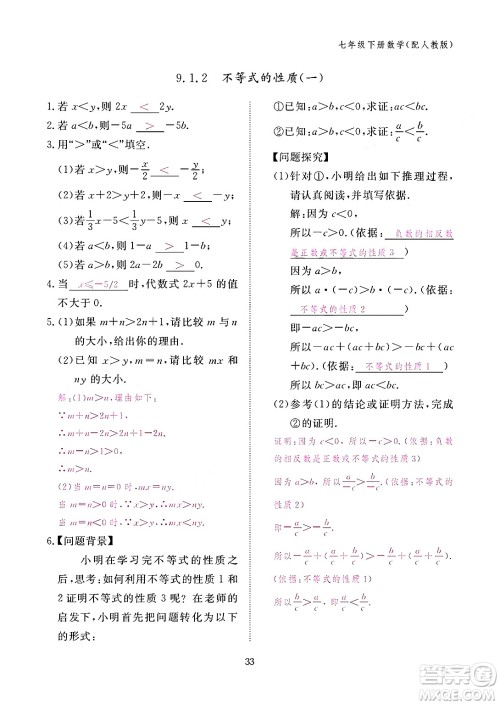 七年级下册数学(配人教版)
9.1.2 不等式的性质(一)
1.若 x<y,则 2x < 2y.
2.若 a<b,则-5a > -5b.
3.用“>”或“<”填空.
(1)若 x>y,则-x/2 < -y/2
(2)若 x+2>y+2,则 x > y
(3)若1/3x-5<1/3y-5,则 x < y
(4)若 a>b,则 2a-2 > 2b-2
4.当 x≤-5/2 时,代数式 2x+5 的值
不大于 0.
5.(1)如果 m+n>2n+1,请比较 m,n
的大小,给出你的理由.
(2)已知 x>y,请比较 mx 与
ny 的大小.
解:(1)m>n.理由如下:
∵m+n>2n+1,
∴m+n-2n>2n+1-2n
∴m-n>1>0,
∴m>n.
(2)当 m=n>0 时,∵x>y,∴mx>ny
当 m=n=0 时,mx=ny
当 m=n<0 时,∵x>y,∴mx<ny.
6.【问题背景】
小明在学习完不等式的性质以
后,思考:如何利用不等式的性质 1
和 2 证明不等式的性质 3?在老师的
启发下,小明首先把问题转化为以下
的形式:
①已知:a>b,c<0,求证:ac<bc.
②已知:a>b,c<0,求证:a/c<b/c.
【问题探究】
(1)针对①,小明给出如下推理过程,
请认真阅读,并填写依据.
解:因为 c<0,
所以-c>0.(依据: 负数的相反数
是正数或不等式的性质 3 )
因为 a>b,
所以 a·(-c)>b·(-c)
(依据: 不等式的性质 2 )
即:-ac>-bc
所以-ac+(ac+bc)>-bc+
(ac+bc)(依据: 不等式的性质 1 )
所以 bc>ac,即 ac<bc.
(2)参考(1)的结论或证明方法,完成
②的证明.
证明:因为 c<0,所以-c>0.(依据:负数
的相反数是正数或不等式的性质 3)
因为 a>b,所以
(依据:不等式的性质
即:-a/c>-b/c
所以-a/c+(a/c+b/c)>-b/c+(a/c+b/c)
(依据:不等式的性质 1)
所以 b/c>a/c,即 a/c<b/c.
33